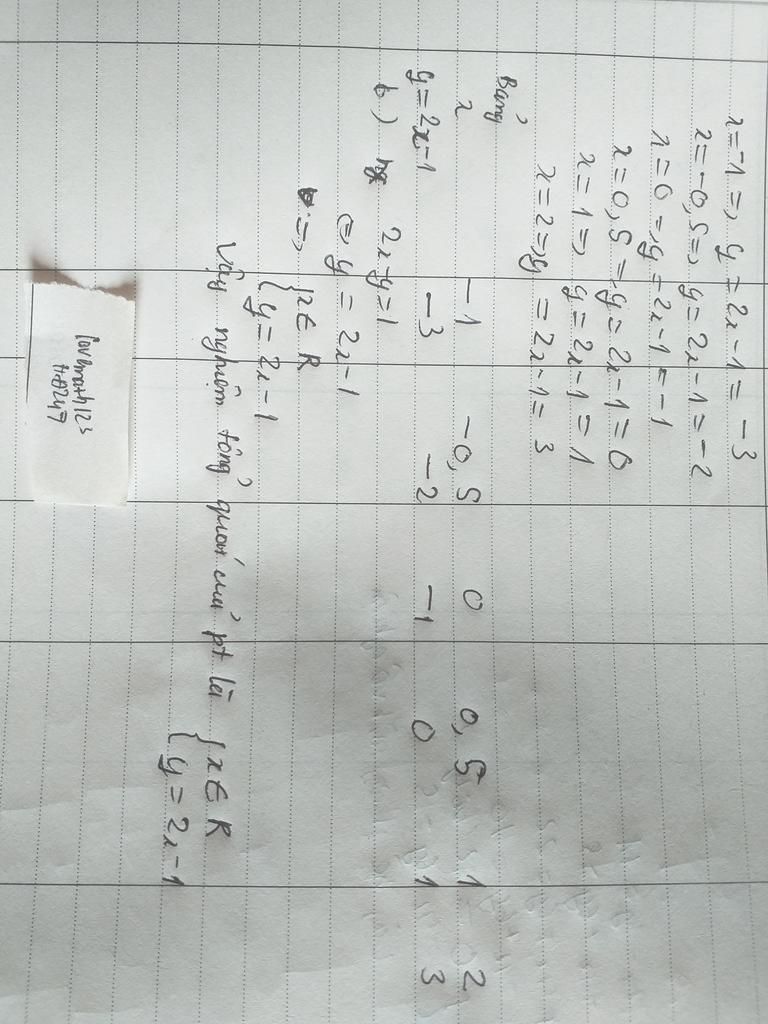 x = -1 => y = 2x - 1 = -3
x = -0,5 => y = 2x - 1 = -2
x = 0 => y = 2x - 1 = -1
x = 0,5 => y = 2x - 1 = 0
x = 1 => y = 2x - 1 = 1
x = 2 => y = 2x - 1 = 3
Bảng
x -1 -0,5 0 0,5 1 2
y = 2x - 1 -3 -2 -1 0 1 3
b) 2x - y = 1
<=> y = 2x - 1
=> { x ∈ R
{ y = 2x - 1
Vậy nghiệm tổng quát của pt là { x ∈ R
{ y = 2x - 1
lovemath123